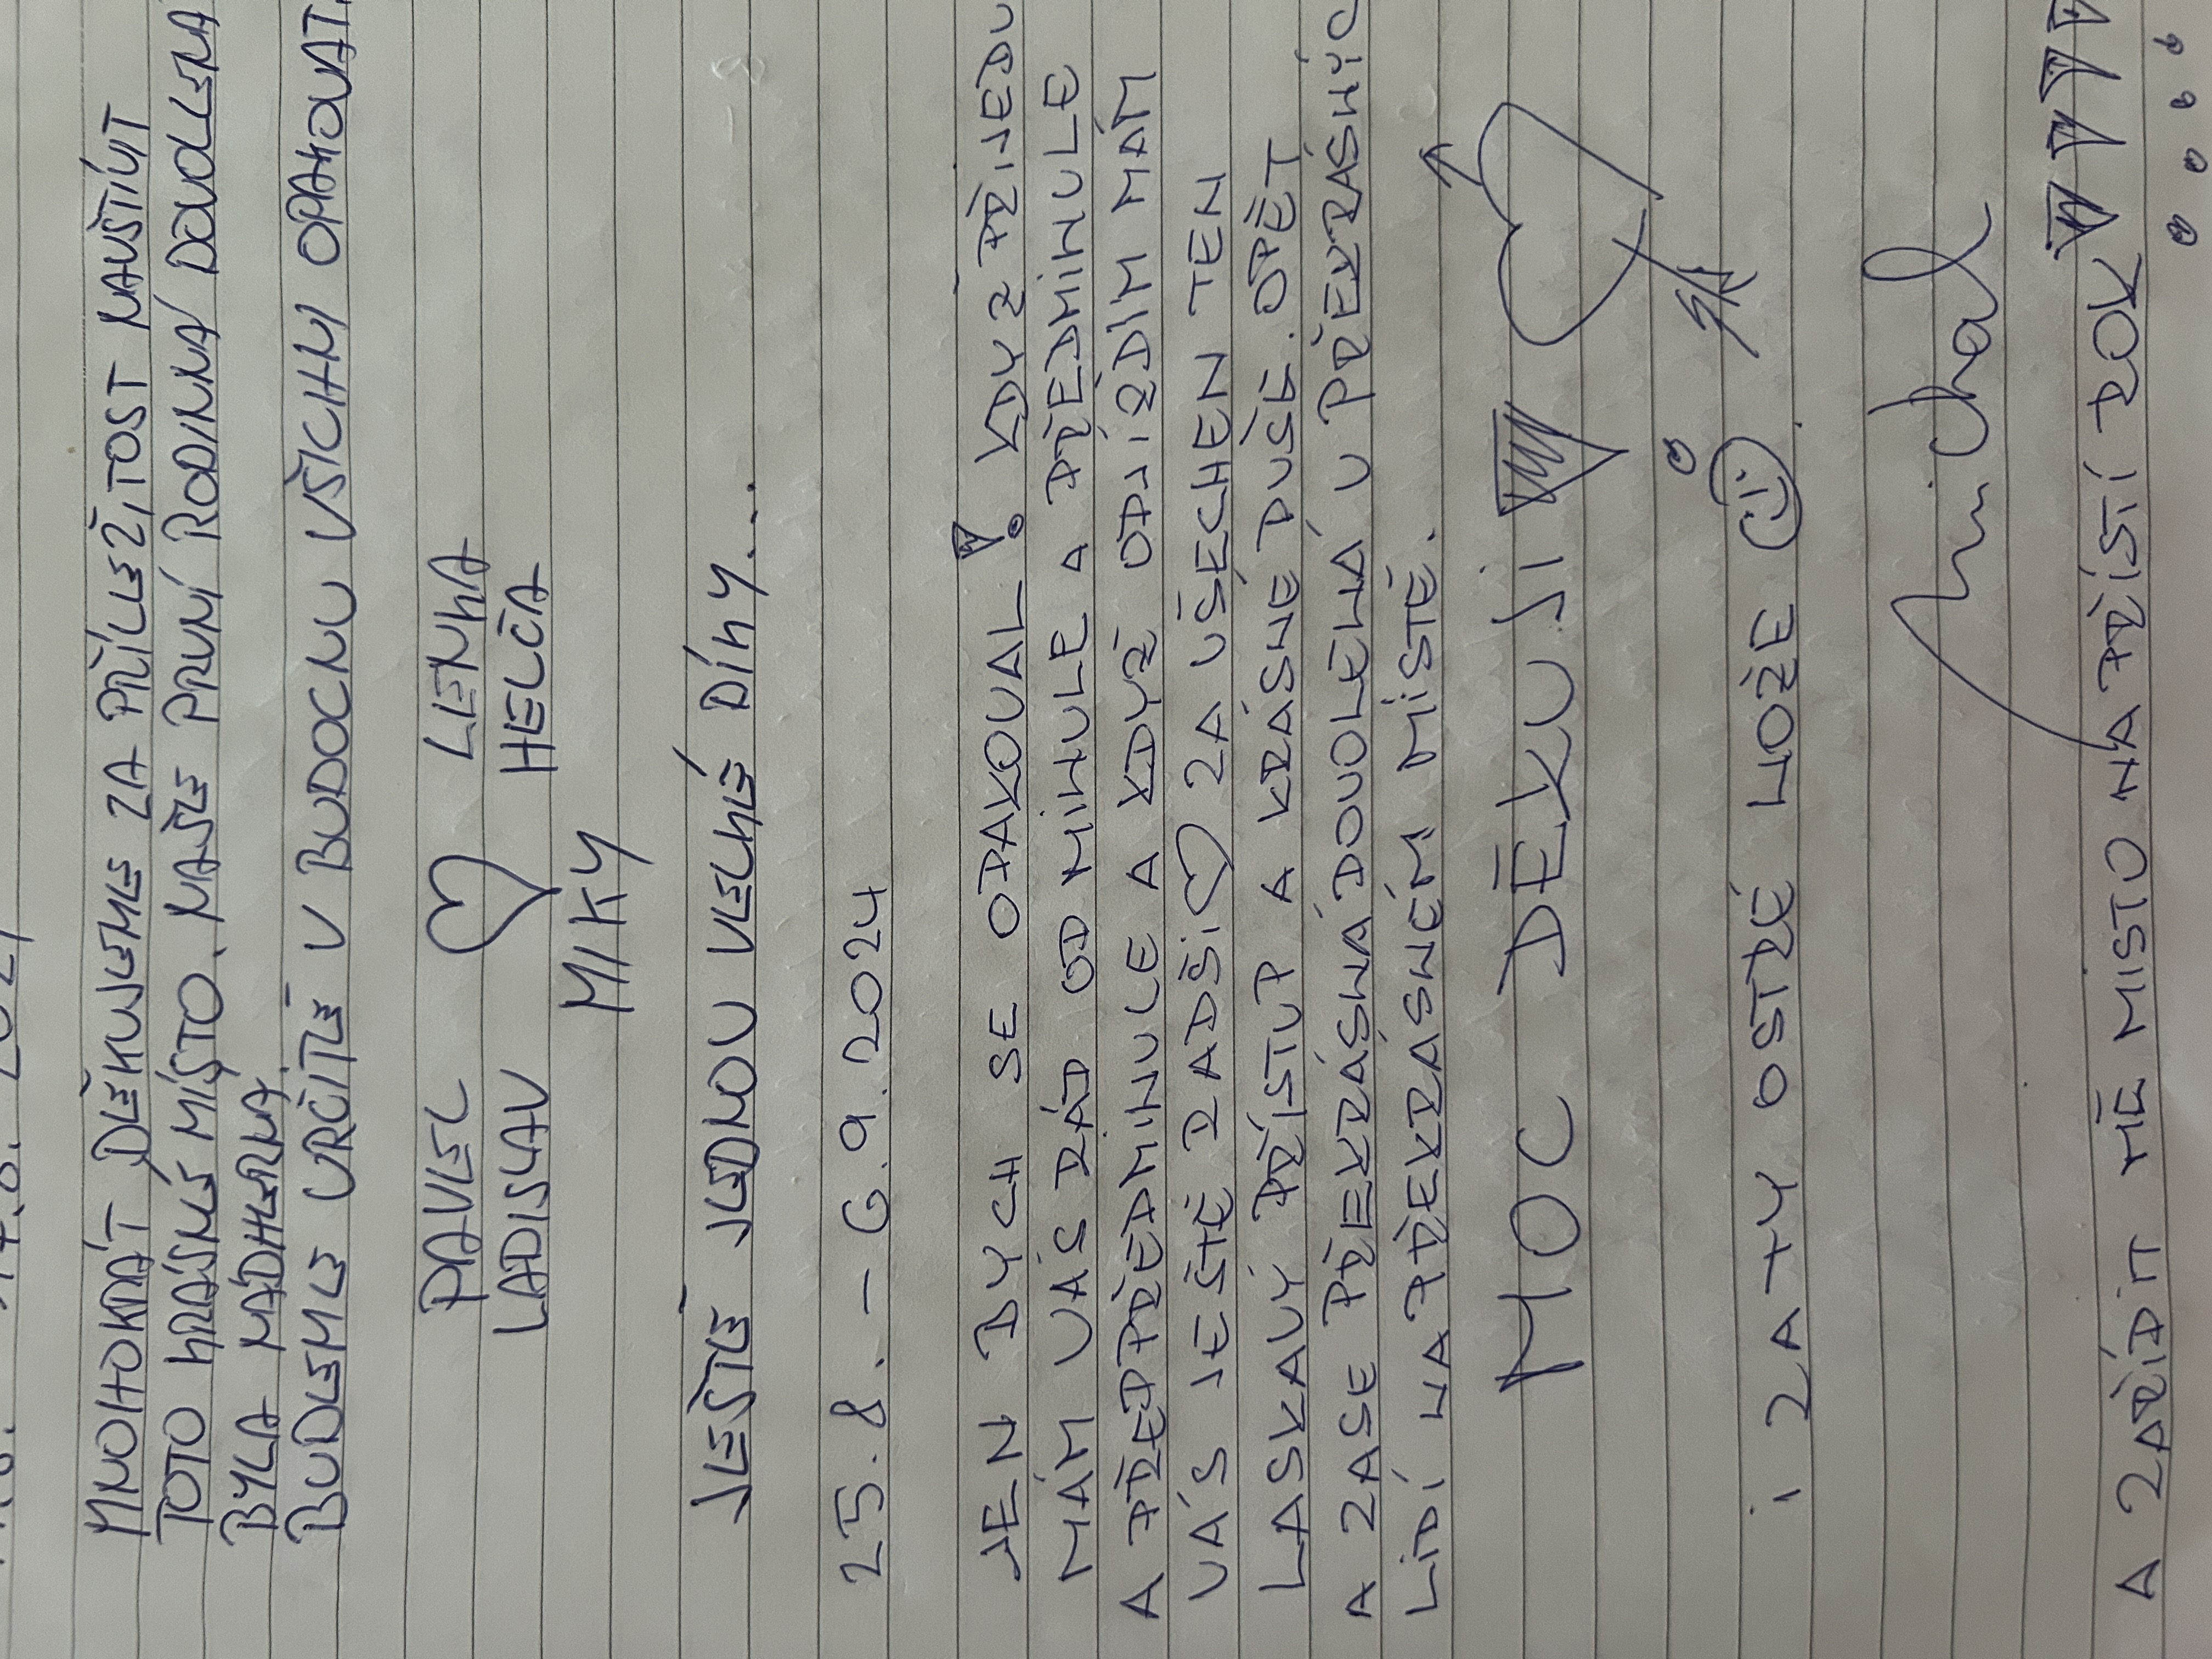 MNOHOKRÁT DĚKUJEME ZA PŘÍLEŽITOST NAVŠTÍVIT
TOTO KRÁSNÉ MÍSTO. NAŠE PRVNÍ RODINNÁ DOVOLENÁ
BYLA NÁDHERNÁ.
BUDEME URČITĚ V BUDOCNU VŠICHNI OPAKOVAT.
PAVEL ♡ LENKA
LADISLAV HELČA
MIKY
JEŠTĚ JEDNOU VELKÉ DÍKY...
25.8. – 6.9.2024
JEN BYCH SE OPAKOVAL! KDYŽ PŘIJEDU
MÁM VÁS RÁD OD MINULE A PŘEDMINULE
A PŘEDPŘEDMINULE A KDYŽ ODJÍŽDIM MÁM
VÁS JEŠTĚ RADŠI ♡ ZA VŠECHEN TEN
LASKAVÝ PŘÍSTUP A KRÁSNÉ DUŠE. OPĚT
A ZASE PŘEKRÁSNÁ DOVOLENÁ U PŘEKRÁSNÝC
LIDÍ NA PŘEKRÁSNÉM MÍSTĚ.
MOC DĚKUJI! ♡
i ZA TY OSTRÉ NOŽE ☺.
Michal
A ZAŘÍDIT MĚ MÍSTO NA PŘÍŠTÍ ROK!!!!